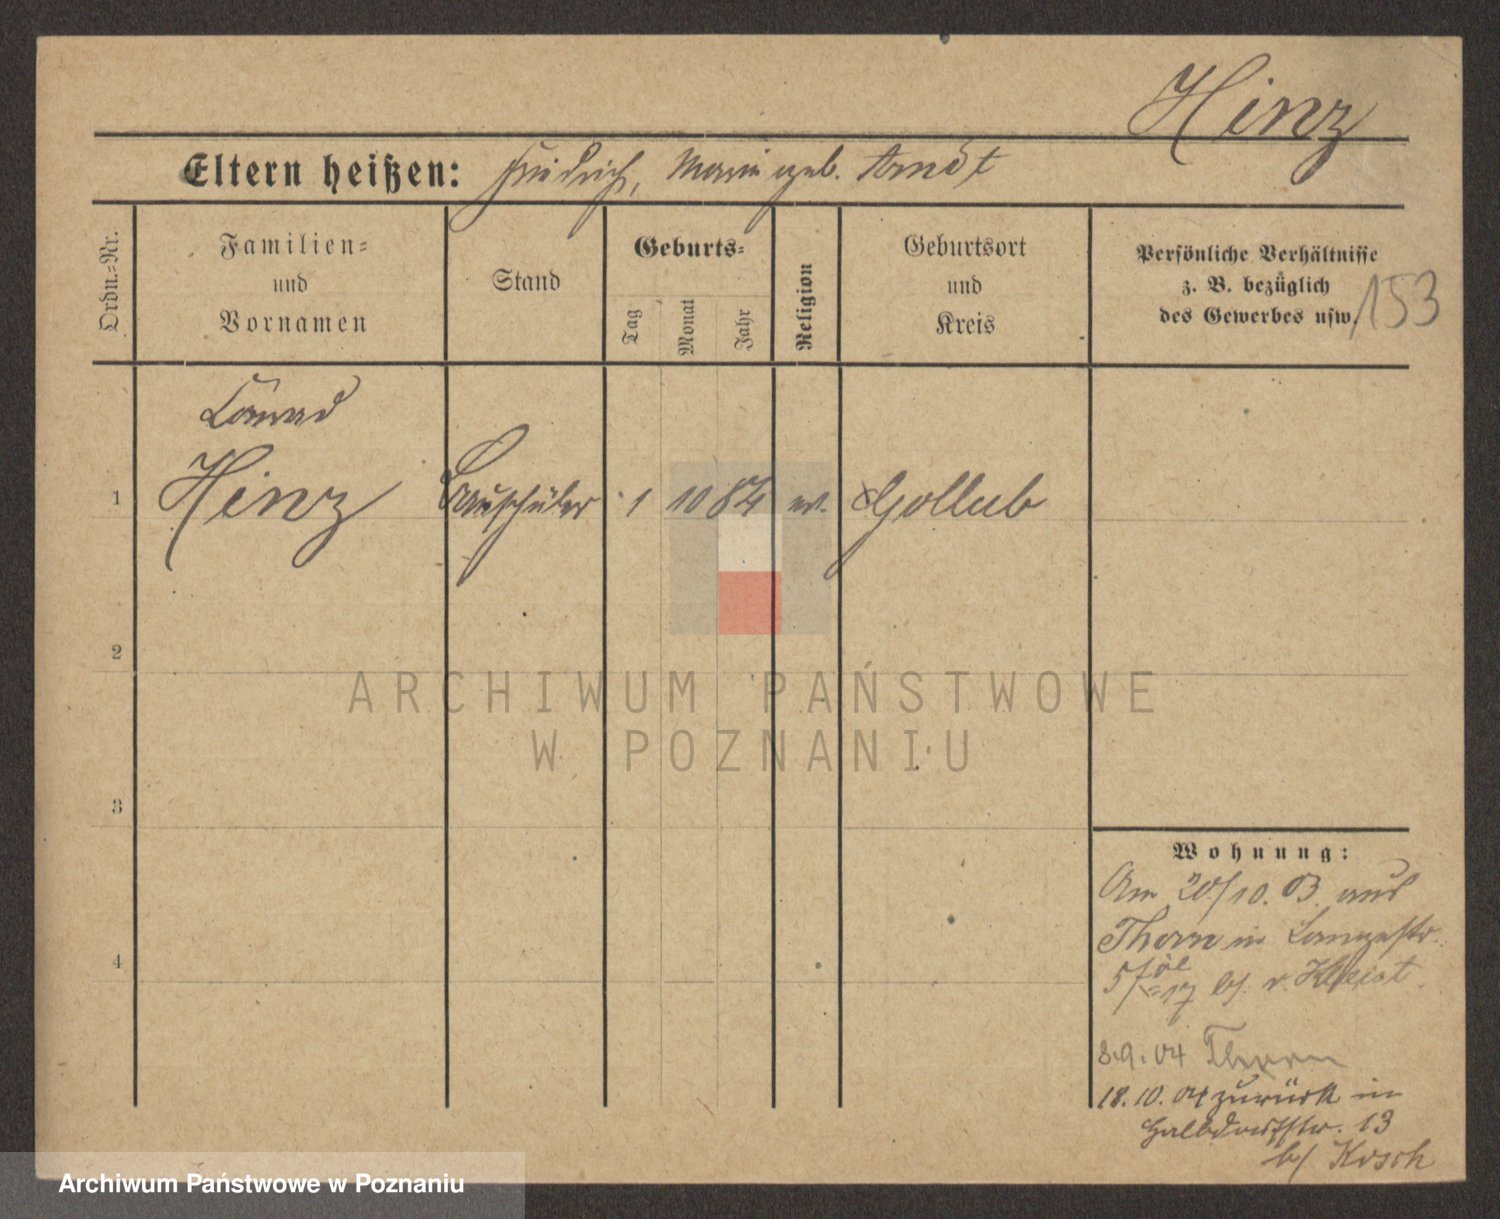 Hinz
Eltern heißen: Friedrich, Marie geb. Arndt
Ordn.=Nr.
Familien=
und
Vornamen
Stand
Geburts=
Tag
Monat
Jahr
Religion
Geburtsort
und
Kreis
Persönliche Verhältnisse
z. B. bezüglich
des Gewerbes usw.
153
Conrad
1 Hinz Bauschüler 1 10 84 ev. Gollub
2
3
4
ARCHIWUM PAŃSTWOWE
W POZNANIU
Wohnung:
Am 20/10. 03. aus
Thorn in Langestr.
5/ b/. v. Kleist.
8.9.04 Thorn
18.10.04 zurück in
Halbdorfstr. 13
b/ Kosch
Archiwum Państwowe w Poznaniu